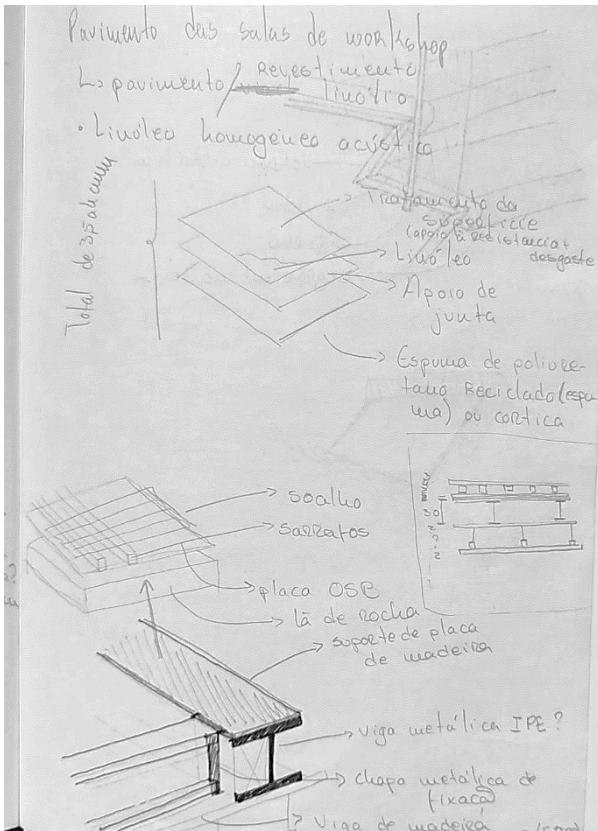 Pavimento das salas de workshop
↳ pavimento / Revestimento
linólio
• Linóleo homogéneo acústico
Total de
Tratamento da
superfície
(apoio à resistência +
desgaste
Linóleo
Apoio de
junta
Espuma de poliure-
tano Reciclado (espu-
ma) ou cortiça
soalho
sarrafos
placa OSB
lã de rocha
suporte de placa
de madeira
30
viga metálica IPE?
chapa metálica de
fixaçã
Viga de madeira